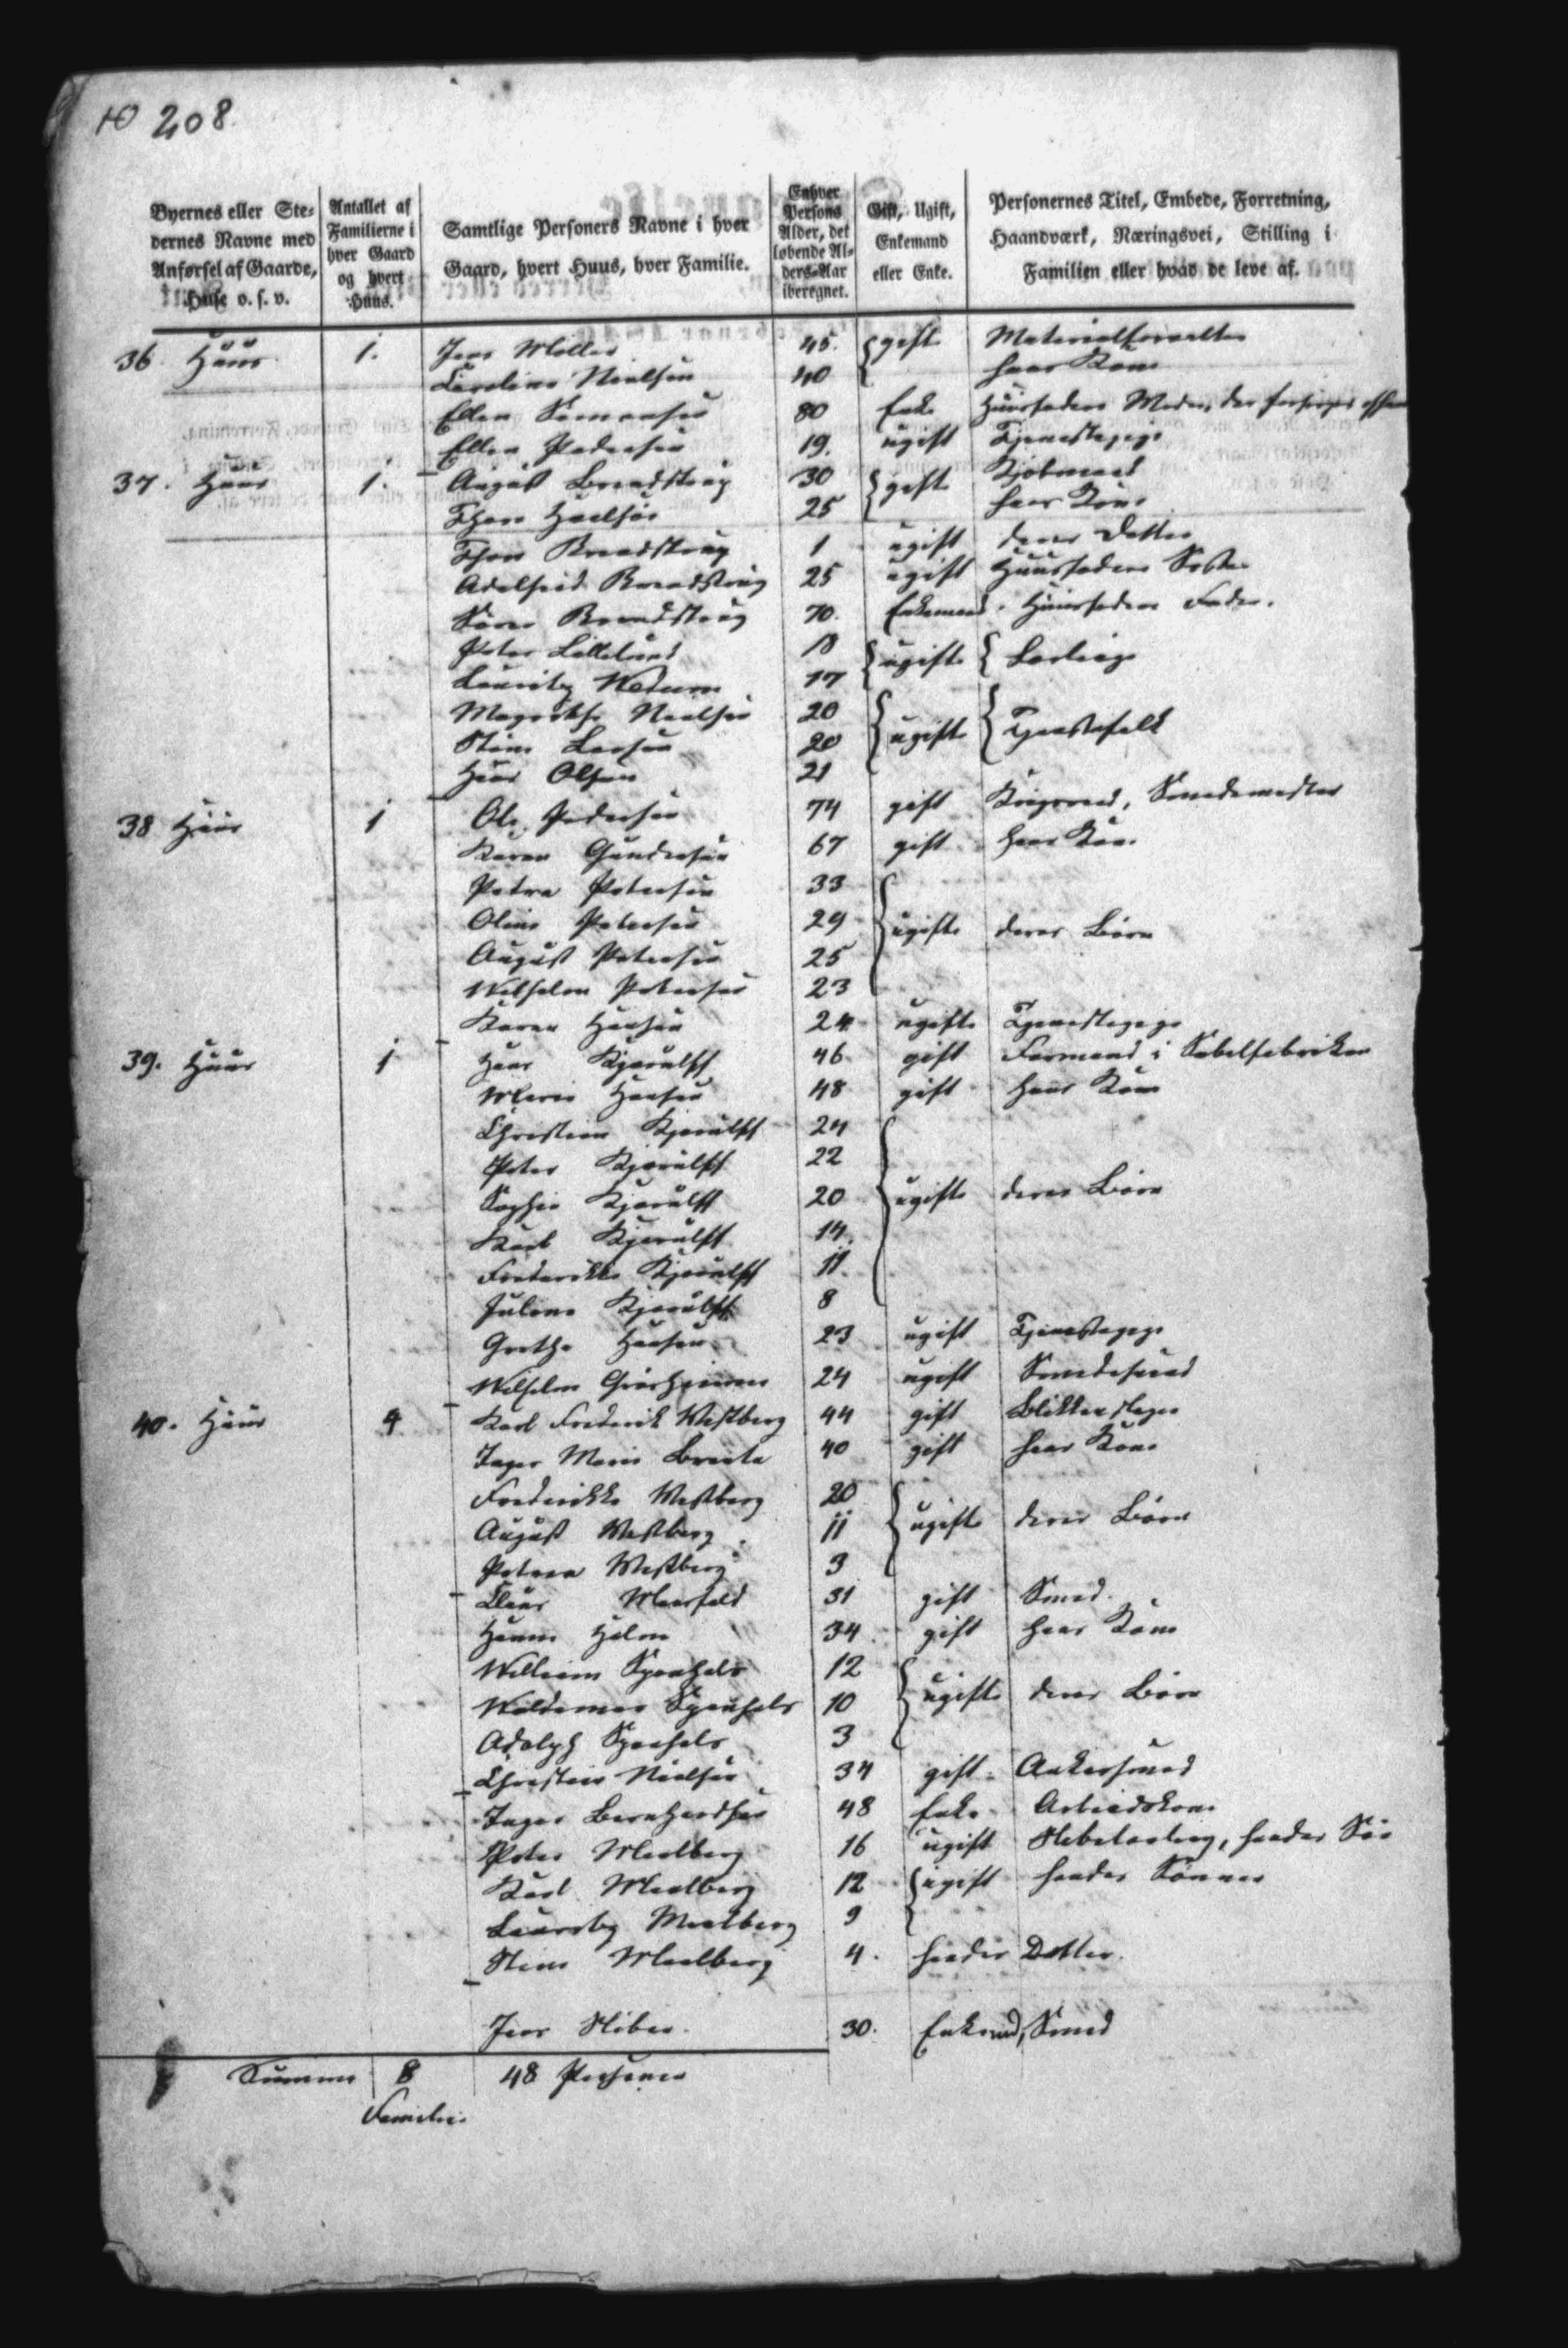 10 208
Byernes eller Stedernes Navne med Anførsel af Gaarde, Huse o. s. v.
Antallet af Familierne i hver Gaard og hvert Huus.
Samtlige Personers Navne i hver Gaard, hvert Huus, hver Familie.
Enhver Persons Alder, det løbende Alders-Aar iberegnet.
Gift, Ugift, Enkemand eller Enke.
Personernes Titel, Embede, Forretning, Haandværk, Næringsvei, Stilling i Familien eller hvad de leve af.
36 Huus 1. Jens Møller 45. gifte Materialforvalter
Caroline Nielsen 40 hans Kone
Ellen Simonsen 80 Enke Huusfaders Moder, der forsørges
Ellen Pedersen 19. ugift Tjenestepige
37. Huus 1. August Brendstrup 30 gifte Kjøbmand
Thora 25 hans Kone
Thora Brendstrup 1 ugift deres Datter
Adelheid Brendstrup 25 ugift Huusfaders Søster
Søren Brendstrup 70. Enkemand Huusfaders Fader.
Peter Lillelund 18 ugifte Lærlinge
Lauritz Wedum 17
Magrethe Nielsen 20 ugifte Tjenestefolk
Stine Larsen 20
Hans Olsen 21
38 Huus 1 Ole Pedersen 74 gift Krigsraad, Smedemester
Karen Gundersen 67 gift hans Kone
Petra Petersen 33 ugifte deres Børn
Oline Petersen 29
August Petersen 25
Wilhelm Petersen 23
Karen Hansen 24 ugift Tjenestepige
39. Huus 1 Hans Kjerulff 46 gift Formand i Sabelfabriken
Maren Hansen 48 gift hans Kone
Christian Kjerulff 24 ugifte deres Børn
Peter Kjerulff 22
Sophie Kjerulff 20
Karl Kjerulff 14.
Frederikke Kjerulff 11.
Juliane Kjerulff 8
Grethe Hansen 23 ugift Tjenestepige
Wilhelm 24 ugift Smedesvend
40. Huus 4 Karl Frederik Westberg 44 gift Blikkenslager
Inger Marie 40 gift hans Kone
Frederikke Westberg 20 ugifte deres Børn
August Westberg 11
Petrea Westberg 3
Claus 31 gift Smed.
Hanne Holm 34 gift hans Kone
William 12 ugifte deres Børn
Waldemar 10
Adolph 3
Christian Nielsen 34 gift Ankersmed
Inger Bernhardsen 48 Enke Arbeidskone
Peter Malberg 16 ugift hendes Søn
Karl Malberg 12 ugift hendes Sønner
Lauritz Malberg 9
Stine Malberg 4. hendes Datter.
Jens 30. Enkemd, Smed
Summa 8 48 Personer
Familier